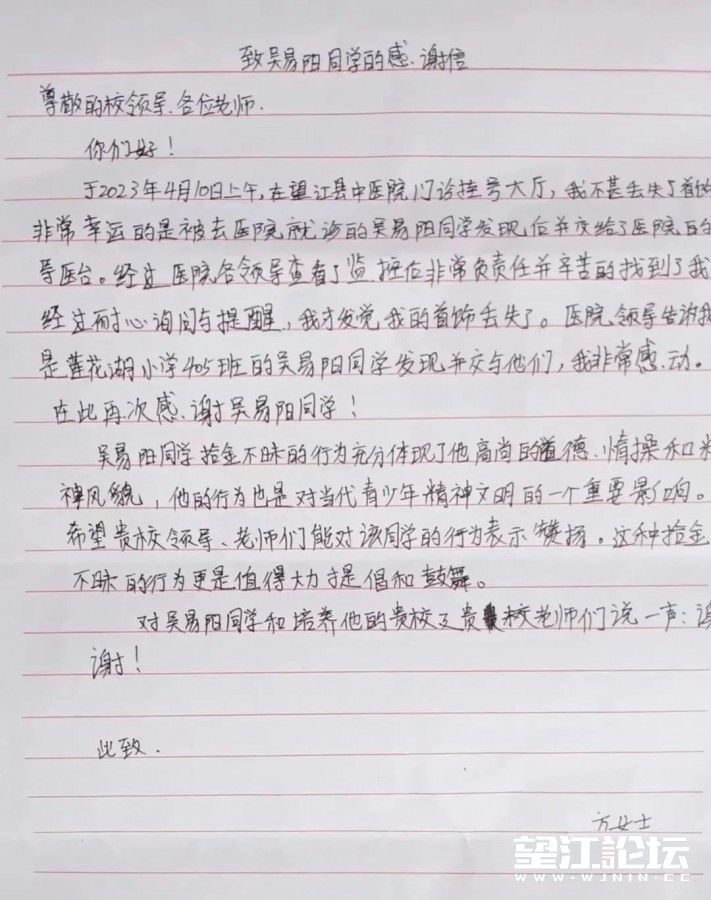 致吴易阳同学的感谢信
尊敬的校领导、各位老师.
你们好！
于2023年4月10日上午,在望江县中医院门诊挂号大厅，我不甚丢失了首饰
非常幸运的是被去医院就诊的吴易阳同学发现后并交给了医院的
导医台。经过医院各领导查看了监控后非常负责任并辛苦的找到了我
经过耐心询问与提醒，我才发觉我的首饰丢失了。医院领导告诉我
是莲花湖小学405班的吴易阳同学发现并交与他们，我非常感动。
在此再次感谢吴易阳同学！
吴易阳同学拾金不昧的行为充分体现了他高尚的道德、情操和精
神风貌，他的行为也是对当代青少年精神文明的一个重要影响。
希望贵校领导、老师们能对该同学的行为表示赞扬。这种拾金
不昧的行为更是值得大力提倡和鼓舞。
对吴易阳同学和培养他的贵校及贵校老师们说一声：谢
谢！
此致.
方女士
望江论坛
WWW.WJNIN.CC